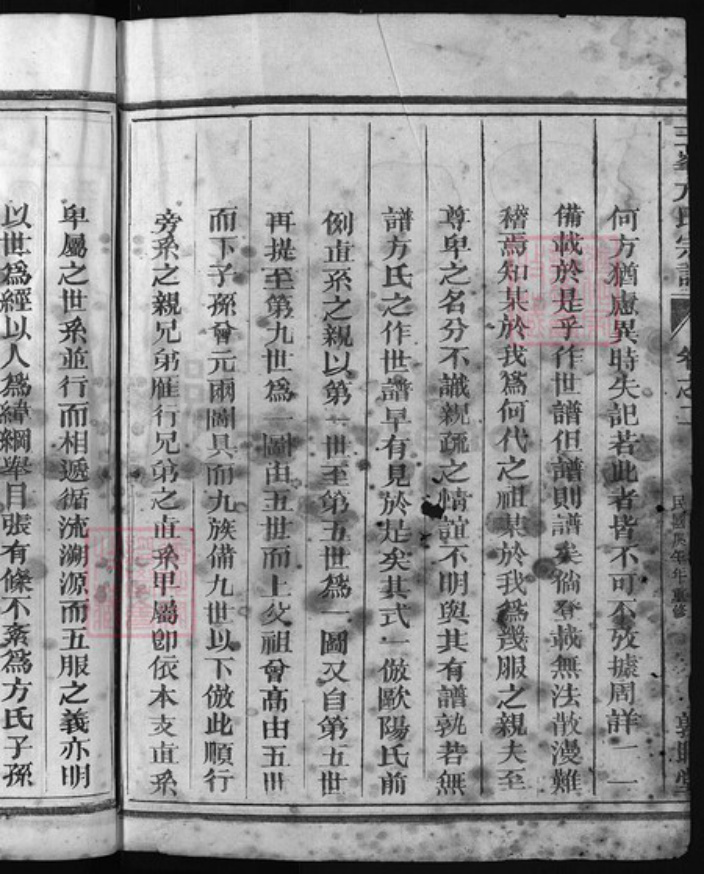 方氏宗譜
卷之二
民國庚午年重修
何方猶慮異時失記若此者皆不可不攷據周詳一一
備載於是乎作世譜但譜則譜矣倘登載無法散漫難
稽焉知某於我爲何代之祖某於我爲幾服之親夫至
尊卑之名分不識親疏之情誼不明與其有譜孰若無
譜方氏之作世譜早有見於是矣其式一倣歐陽氏前
例直系之親以第一世至第五世爲一圖又自第五世
再提至第九世爲一圖由五世而上父祖曾高由五世
而下子孫曾元兩圖具而九族備九世以下倣此順行
旁系之親兄弟雁行兄弟之直系甲屬卽依本支直系
卑屬之世系並行而相遞循流溯源而五服之義亦明
以世爲經以人爲緯綱舉目張有條不紊爲方氏子孫